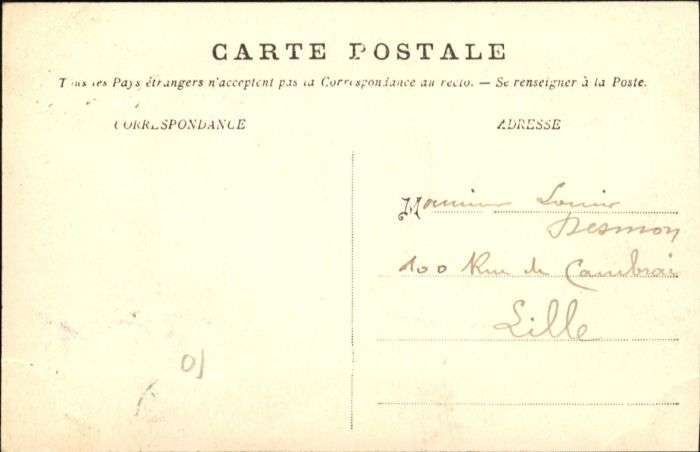 CARTE POSTALE
Tous les Pays étrangers n'acceptent pas la Correspondance au recto. — Se renseigner à la Poste.
CORRESPONDANCE
ADRESSE
Monsieur Louis
Desmon
100 Rue de Cambrai
Lille
10